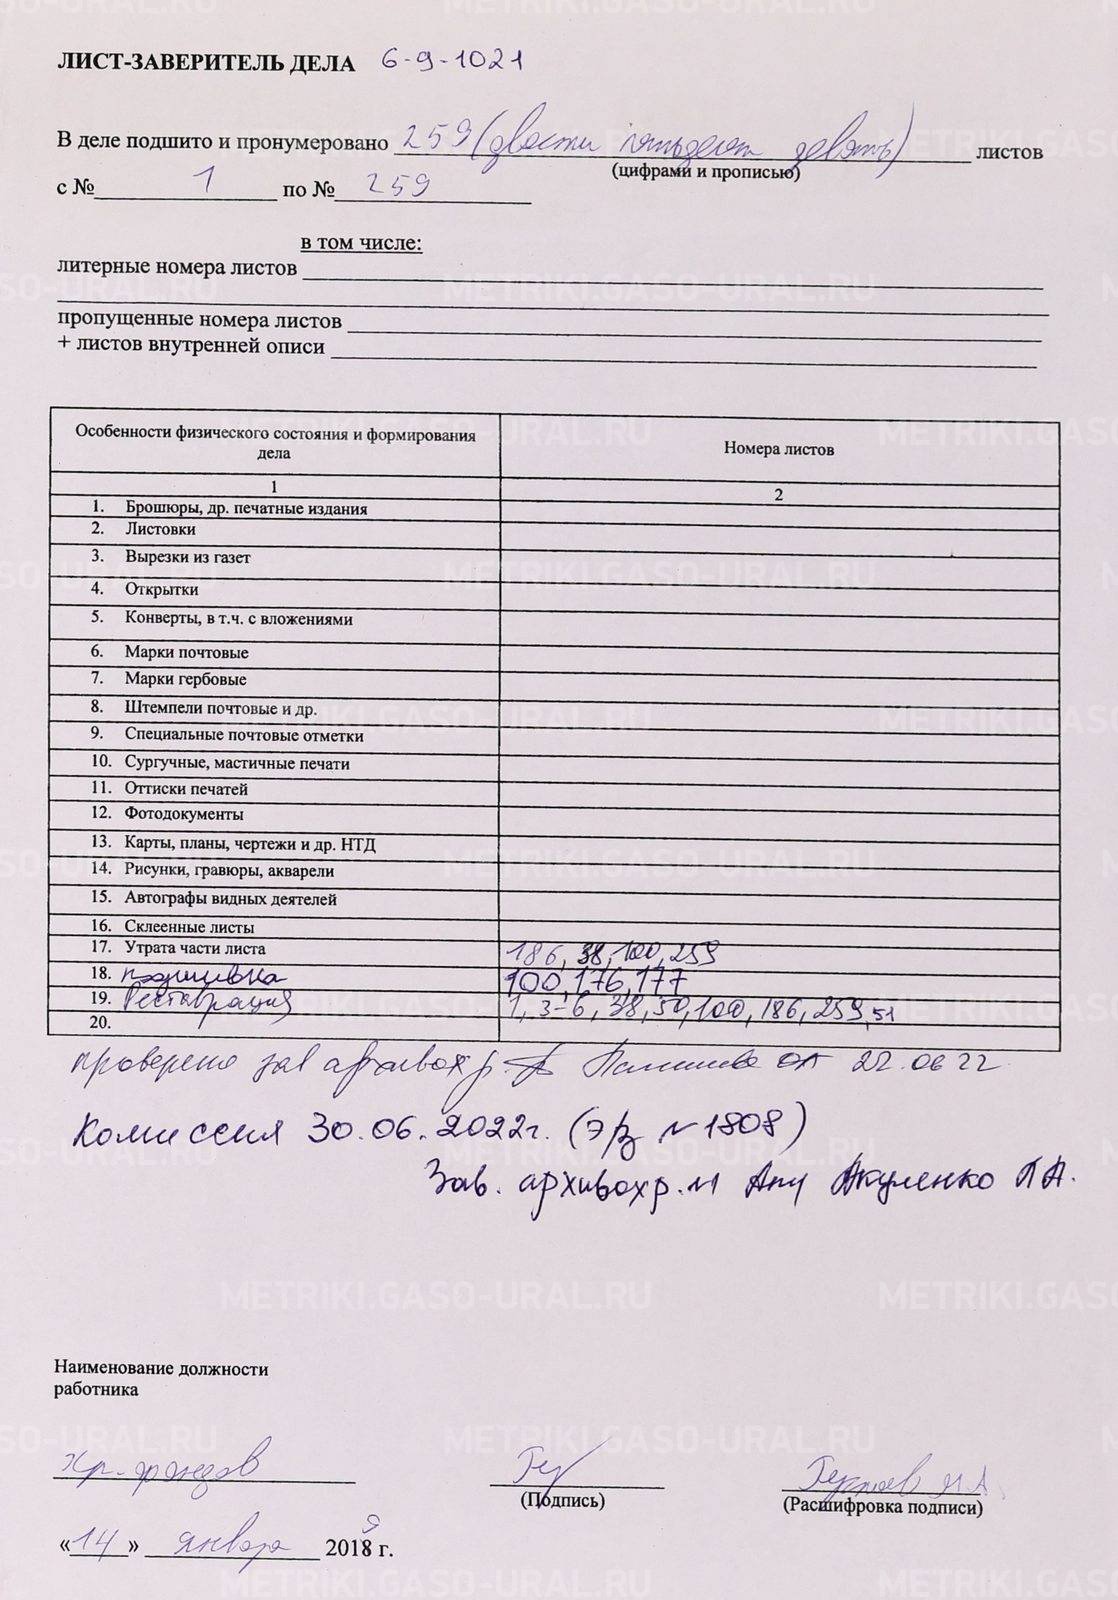 ЛИСТ-ЗАВЕРИТЕЛЬ ДЕЛА 6-9-1021
В деле подшито и пронумеровано 259 (двести пятьдесят девять) листов
(цифрами и прописью)
с № 1 по № 259
в том числе:
литерные номера листов
пропущенные номера листов
+ листов внутренней описи
Особенности физического состояния и формирования дела Номера листов
1 2
1. Брошюры, др. печатные издания
2. Листовки
3. Вырезки из газет
4. Открытки
5. Конверты, в т.ч. с вложениями
6. Марки почтовые
7. Марки гербовые
8. Штемпели почтовые и др.
9. Специальные почтовые отметки
10. Сургучные, мастичные печати
11. Оттиски печатей
12. Фотодокументы
13. Карты, планы, чертежи и др. НТД
14. Рисунки, гравюры, акварели
15. Автографы видных деятелей
16. Склеенные листы
17. Утрата части листа 186, 38, 100, 259
18. подшивка 100, 176, 177
19. Реставрация 1, 3-6, 38, 50, 100, 186, 259, 51
20.
проверено зав архивохр. 22.06 22
Комиссия 30.06.2022г. (Э/з № 1808)
Зав. архивохр. Акуленко
Наименование должности
работника
хр. фондов
(Подпись) (Расшифровка подписи)
«14» января 2018 г.
METRIKI.GASO-URAL.RU